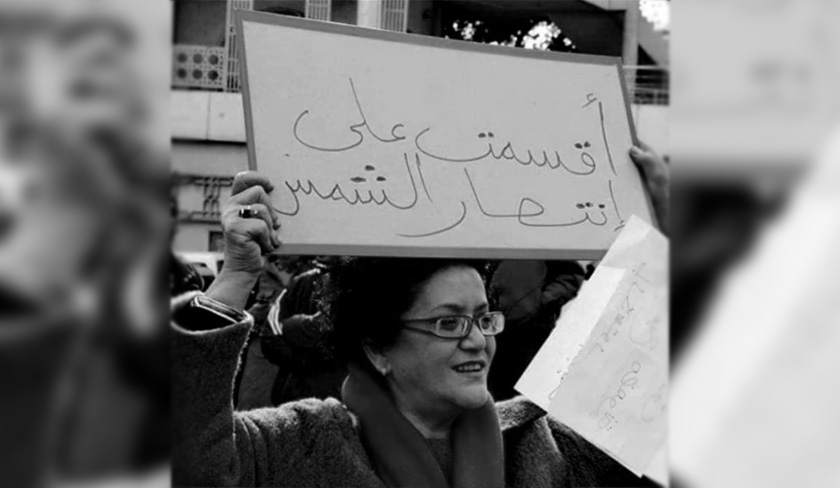 أقسمت على
إنتصار الشمس